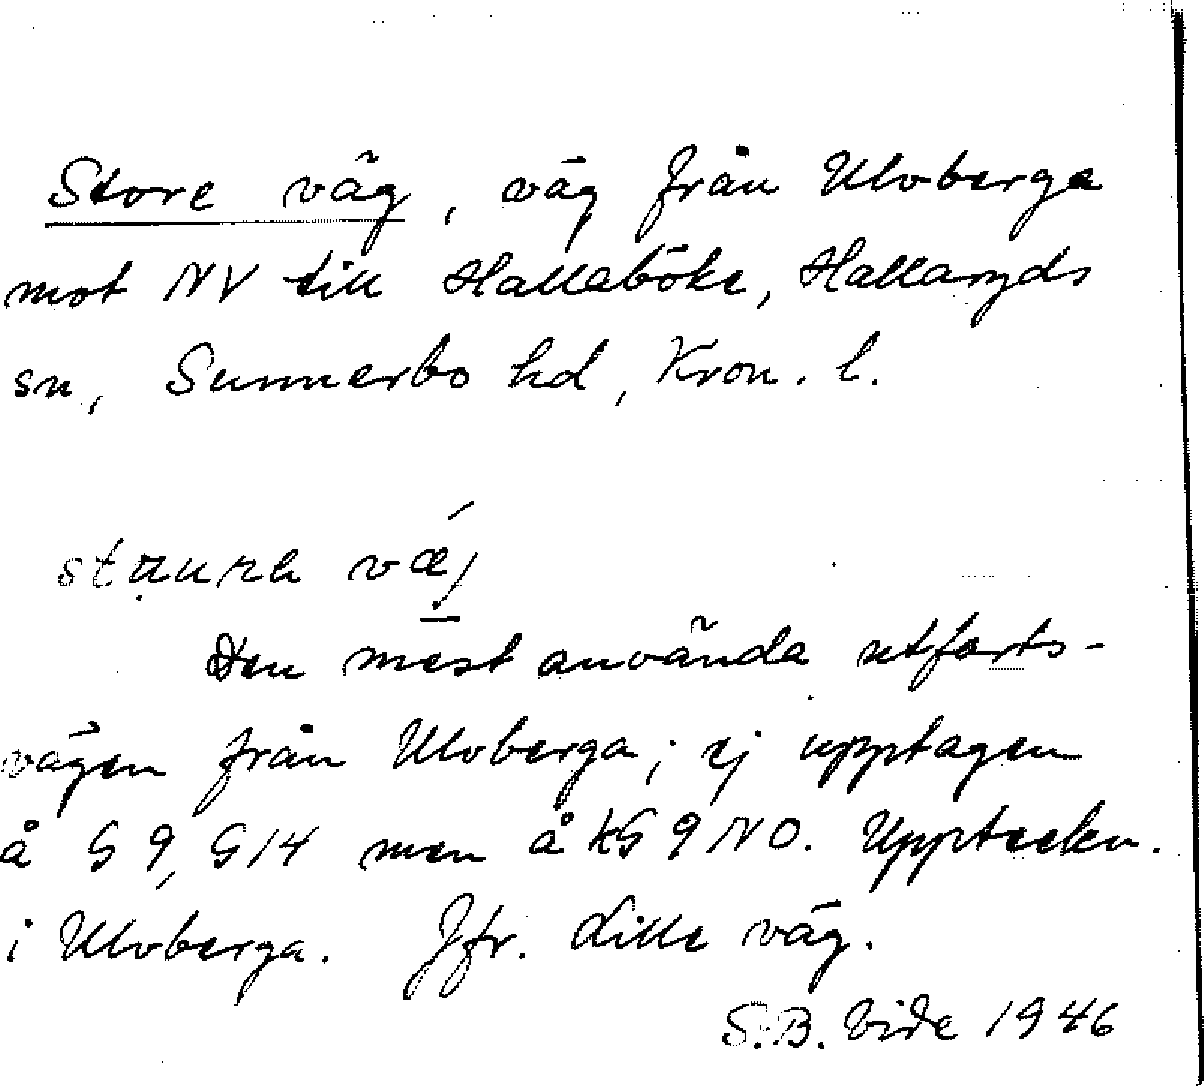 Store väg, väg från Ulvberga
mot NV till Hallaböke, Hallaryds
sn, Sunnerbo hd, Kron. l.
väj
Den mest använda utfarts-
vägen från Ulvberga; ej upptagen
å G 9, G 14 men å kG 9 NO. Uppteckn.
i Ulvberga. Jfr. Lille väg.
S.B. Vide 1946